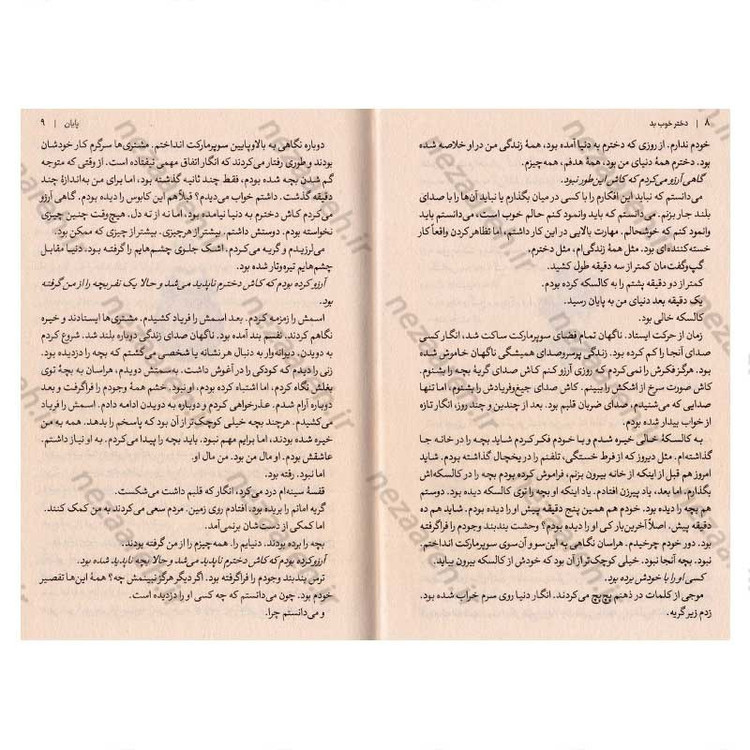 ۸ | دختر خوب بد
خودم ندارم. از روزی که دخترم به دنیا آمده بود، همهٔ زندگی من در او خلاصه شده
بود. دخترم همهٔ دنیای من بود، همهٔ هدفم، همه‌چیزم.
گاهی آرزو می‌کردم که کاش این‌طور نبود.
می‌دانستم که نباید این افکارم را با کسی در میان بگذارم یا نباید آن‌ها را با صدای
بلند جار بزنم. می‌دانستم که باید وانمود کنم حالم خوب است، می‌دانستم باید
وانمود کنم که خوشحالم. مهارت بالایی در این کار داشتم، اما تظاهر کردن واقعاً کار
خسته‌کننده‌ای بود. مثل همهٔ زندگی‌ام، مثل دخترم.
گپ‌وگفت‌مان کمتر از سه دقیقه طول کشید.
کمتر از دو دقیقه پشتم را به کالسکه کرده بودم.
یک دقیقه بعد دنیای من به پایان رسید.
کالسکه خالی بود.
زمان از حرکت ایستاد. ناگهان تمام فضای سوپرمارکت ساکت شد، انگار کسی
صدای آنجا را کم کرده بود. زندگی پرسروصدای همیشگی ناگهان خاموش شده
بود. هرگز فکرش را نمی‌کردم که روزی آرزو کنم کاش صدای گریهٔ بچه را بشنوم.
کاش صورت سرخ از اشکش را ببینم. کاش صدای جیغ‌وفریادش را بشنوم، اما تنها
صدایی که می‌شنیدم، صدای ضربان قلبم بود. بعد از چندین و چند روز، انگار تازه
از خواب بیدار شده بودم.
به کالسکهٔ خالی خیره شدم و با خودم فکر کردم شاید بچه را در خانه جا
گذاشته‌ام. مثل دیروز که از فرط خستگی، تلفنم را در یخچال گذاشته بودم. شاید
امروز هم قبل از اینکه از خانه بیرون بزنم، فراموش کرده بودم بچه را در کالسکه‌اش
بگذارم. اما بعد، یاد پیرزن افتادم. یاد اینکه او بچه را توی کالسکه دیده بود. دوستم
هم بچه را دیده بود. خودم هم همین پنج دقیقه پیش او را دیده بودم. شاید هم ده
دقیقه پیش. اصلاً آخرین‌بار کی او را دیده بودم؟ وحشت بندبند وجودم را فراگرفته
بود. دور خودم چرخیدم. هراسان نگاهی به این‌سو و آن‌سوی سوپرمارکت انداختم.
نبود. بچه آنجا نبود. خیلی کوچک‌تر از آن بود که خودش از کالسکه بیرون بیاید.
کسی او را با خودش برده بود.
موجی از کلمات در ذهنم پچ‌پچ می‌کردند. انگار دنیا روی سرم خراب شده بود.
زدم زیر گریه.
پایان | ۹
دوباره نگاهی به بالاوپایین سوپرمارکت انداختم. مشتری‌ها سرگرم کار خودشان
بودند و طوری رفتار می‌کردند که انگار اتفاق مهمی نیفتاده است. از وقتی که متوجه
گم شدن بچه شده بودم، فقط چند ثانیه گذشته بود، اما برای من به‌اندازهٔ چند
دقیقه گذشت. داشتم خواب می‌دیدم؟ قبلاً هم این کابوس را دیده بودم. گاهی آرزو
می‌کردم کاش دخترم به دنیا نیامده بود، اما نه از ته دل. هیچ‌وقت چنین چیزی
نخواسته بودم. دوستش داشتم. بیشتر از هرچیزی. بیشتر از چیزی که ممکن بود.
می‌لرزیدم و گریه می‌کردم. اشک جلوی چشم‌هایم را گرفته بود. دنیا مقابل
چشم‌هایم تیره‌وتار شده بود.
آرزو کرده بودم که کاش دخترم ناپدید می‌شد و حالا یک نفر بچه را از من گرفته
بود.
اسمش را زمزمه کردم. بعد اسمش را فریاد کشیدم. مشتری‌ها ایستادند و خیره
نگاهم کردند. نفسم بند آمده بود. ناگهان صدای زندگی دوباره بلند شد. شروع کردم
به دویدن. دیوانه‌وار به دنبال هر نشانه یا شخصی می‌گشتم که بچه را دزدیده بود.
زنی را دیدم که کودکی را در آغوش داشت. به‌سمتش دویدم، هراسان به بچهٔ توی
بغلش نگاه کردم، اما اشتباه کرده بودم، او نبود. خشم همهٔ وجودم را فراگرفت و بعد
دوباره آرام شدم. عذرخواهی کردم و دوباره به دویدن ادامه دادم. اسمش را فریاد
می‌کشیدم. هرچند بچه خیلی کوچک‌تر از آن بود که پاسخم را بدهد. همه به من
خیره شده بودند، اما برایم مهم نبود. باید بچه را پیدا می‌کردم. به او نیاز داشتم.
عاشقش بودم. او مال من بود. من مال او.
اما نبود. رفته بود.
قفسهٔ سینه‌ام درد می‌کرد، انگار که قلبم داشت می‌شکست.
گریه امانم را بریده بود. افتادم روی زمین. مردم سعی می‌کردند به من کمک کنند.
اما کمکی از دست‌شان برنمی‌آمد.
بچه را برده بودند. دنیایم را. همه‌چیزم را از من گرفته بودند.
آرزو کرده بودم که کاش دخترم ناپدید می‌شد و حالا بچه ناپدید شده بود.
ترس بندبند وجودم را فراگرفته بود. اگر دیگر هرگز نبینمش چه؟ همهٔ این‌ها تقصیر
خودم بود. چون می‌دانستم که چه کسی او را دزدیده است.
و می‌دانستم چرا.
nezaareh.ir